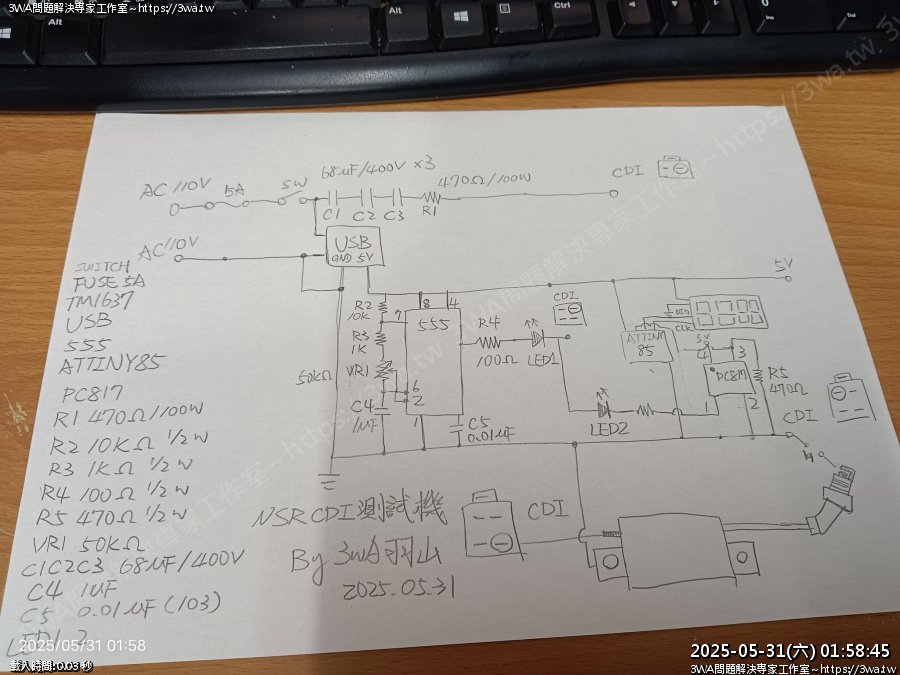 3WA問題解決專家工作室~https://3wa.tw
Alt
Alt
Ctrl
0
Ins
Del
3WA問題解決專家工作室~https://3wa.tw
68uF/400V ×3
AC 110V
5A
SW
470Ω/100W
CDI
C1 C2 C3 R1
AC 110V
USB
GND 5V
5V
SWITCH
FUSE 5A
TM1637
USB
555
ATTINY85
PC817
R1 470Ω/100W
R2 10KΩ 1/2W
R3 1KΩ 1/2W
R4 100Ω 1/2W
R5 470Ω 1/2W
VR1 50KΩ
C1C2C3 68uF/400V
C4 1uF
C5 0.01uF (103)
R2
10K
7
8
4
555
R3
1K
VR1
50KΩ
6
2
C4
1uF
1
C5
0.01uF
R4
100Ω
LED1
CDI
LED2
ATTINY
85
CLK
5V
4
3
PC817
1
2
R5
470Ω
CDI
NSR CDI測試機
By 3WA羽山
2025.05.31
CDI
2025/05/31 01:58
載入時間:0.03 秒
2025-05-31(六) 01:58:45
3WA問題解決專家工作室~https://3wa.tw